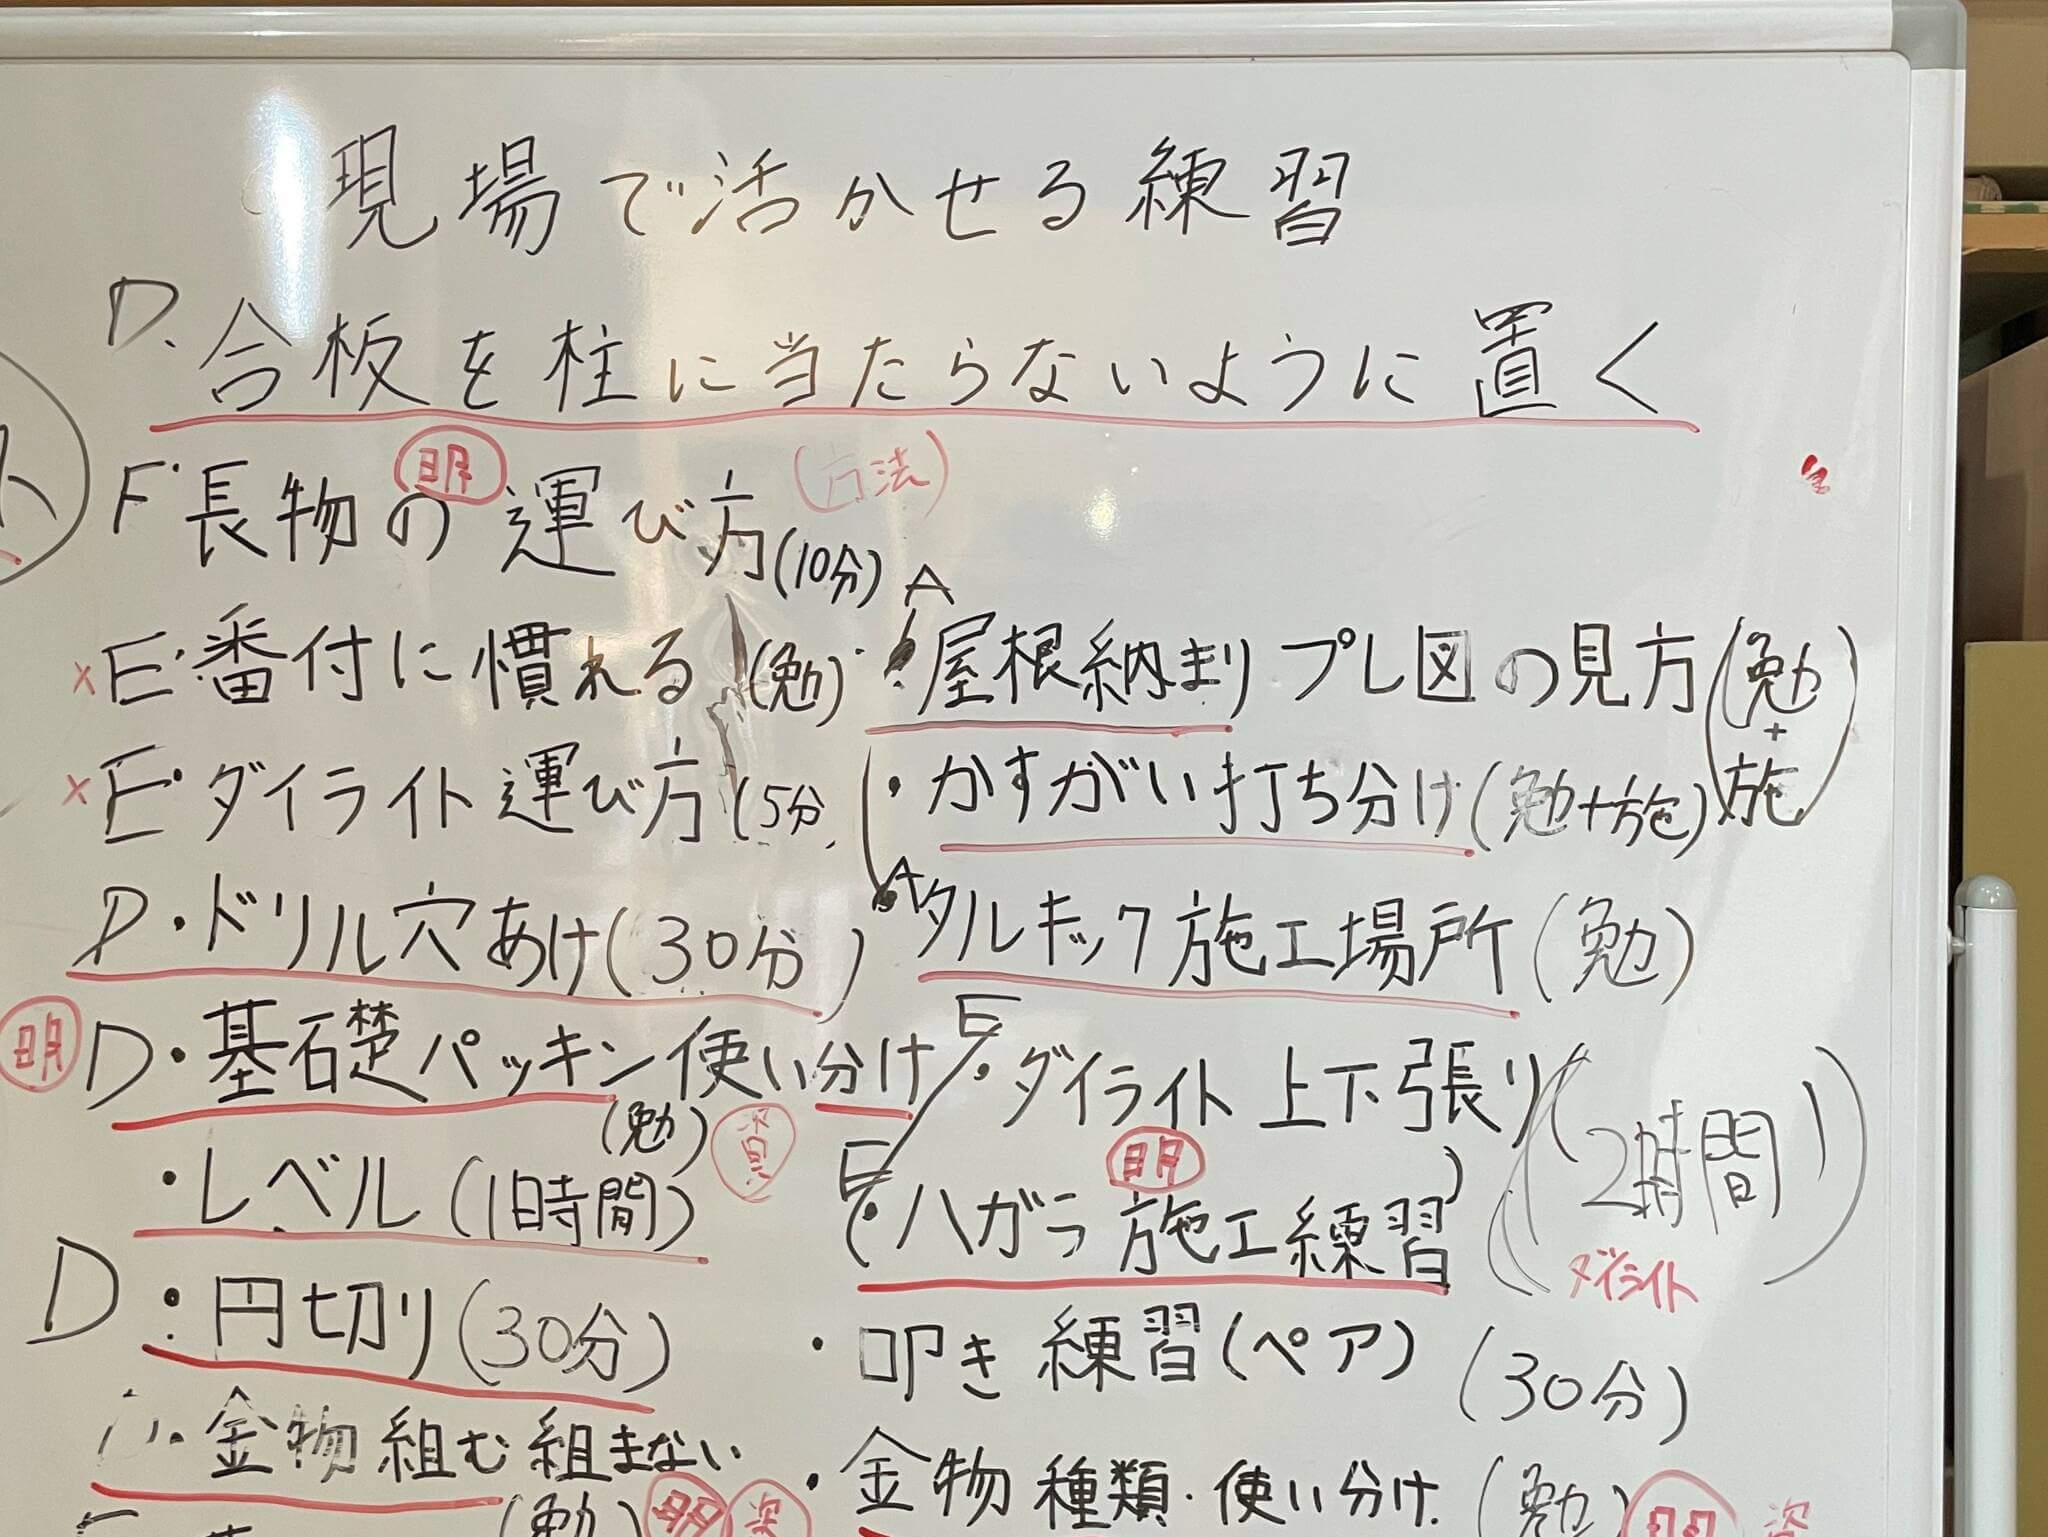 現場で活かせる練習
D. 合板を柱に当たらないように置く
F・長物の運び方(10分)
明
(方法)
×E・番付に慣れる(勉)
×E・ダイライト運び方(5分
・ドリル穴あけ(30分)
明 D・基礎パッキン使い分け
(勉)
・レベル(1時間)
D・円切り(30分)
・金物組む組まない
(勉)
A
・屋根納まり プレ図の見方(勉+施)
・かすがい打ち分け(勉+施)
A タルキック施工場所(勉)
E・ダイライト上下張り(2時間)
明
E(・ハガラ施工練習)
ダイライト
・叩き練習(ペア)(30分)
・金物種類・使い分け.(勉)
明